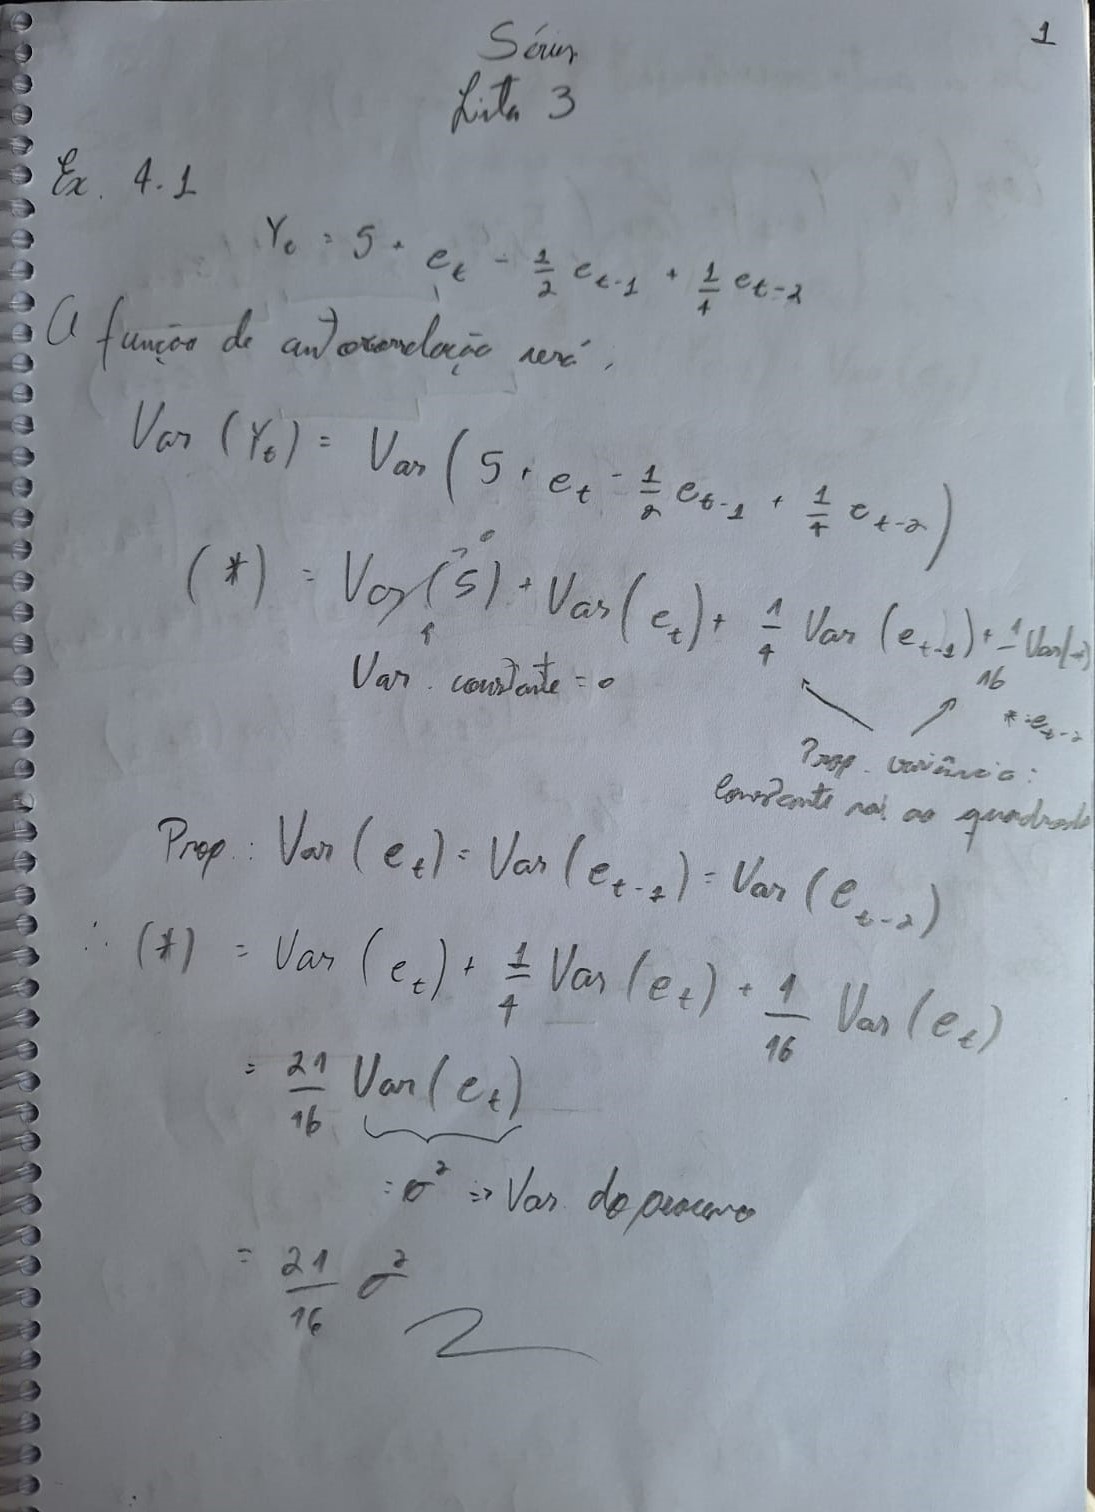 1
Séries
Lista 3
Ex. 4.1
Y_t = 5 + e_t - 1/2 e_{t-1} + 1/4 e_{t-2}
A função de autocorrelação será:
Var (Y_t) = Var ( 5 + e_t - 1/2 e_{t-1} + 1/4 e_{t-2} )
(*) = Var(5) → 0 + Var(e_t) + 1/4 Var (e_{t-1}) + 1/16 Var(*)
Var. constante = 0
* = e_{t-2}
Prop. variância:
Constante sai ao quadrado
Prop.: Var (e_t) = Var (e_{t-1}) = Var (e_{t-2})
∴ (*) = Var (e_t) + 1/4 Var (e_t) + 1/16 Var (e_t)
= 21/16 Var (e_t)
= σ² => Var. do processo
= 21/16 σ²